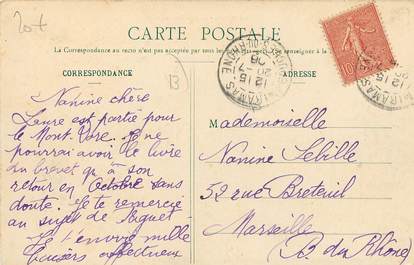 20f
CARTE POSTALE
La Correspondance au recto n'est pas acceptée par tous les
CORRESPONDANCE
ADRESSE
13
MIRAMAS
12 15
20 - 7
06
BCHES DU RHONE
MIRAMAS
12 15
10
Nanine chère
Laure est partie pour
le Mont-Dore. Je ne
pourrai avoir le livre
du brevet qu'à son
retour en Octobre sans
doute. Je te remercie
au sujet de
Je t'envoie mille
baisers affectueux
Mademoiselle
Nanine Sebille
52 rue Breteuil
Marseille
(B. du Rhône)